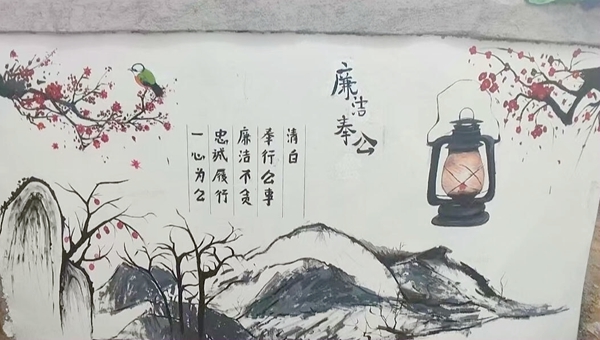 廉洁奉公
清白
奉行公事
廉洁不贪
忠诚履行
一心为公